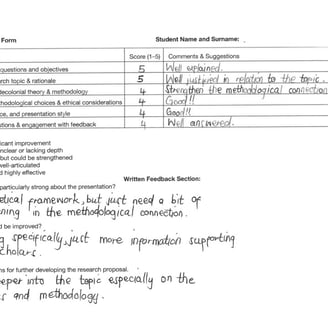 Form Student Name and Surname:
Score (1–5) Comments & Suggestions
questions and objectives 5 Well explained.
rch topic & rationale 5 Well justified in relation to the topic.
decolonial theory & methodology 4 Strengthen the methodological connection
hodological choices & ethical considerations 4 Good!!
ce, and presentation style 4 Good!!
tions & engagement with feedback 4 Well answered.
icant improvement
nclear or lacking depth
but could be strengthened
well-articulated
d highly effective
Written Feedback Section:
particularly strong about the presentation?
etical framework, but just need a bit of
ning in the methodological connection.
d be improved?
g specifically, just more information supporting
cholars.
ns for further developing the research proposal.
eeper into the topic especially on the
s and methodology.